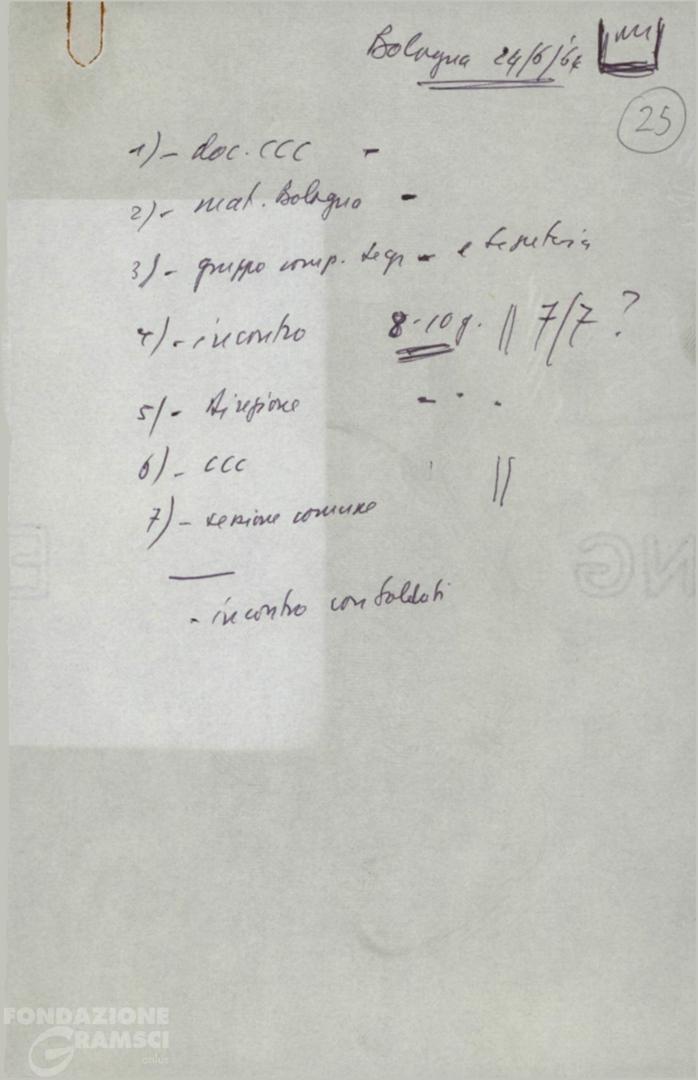 Bologna 24/6/64
25
1) - doc. CCC -
2) - mat. Bologna -
3) - gruppo comp. segr - e segreteria
4) - incontro 8-10 g. || 7/7 ?
5) - Direzione - - -
6) - CCC ||
7) - sezione comune
- incontro con Soldati
FONDAZIONE
GRAMSCI
onlus